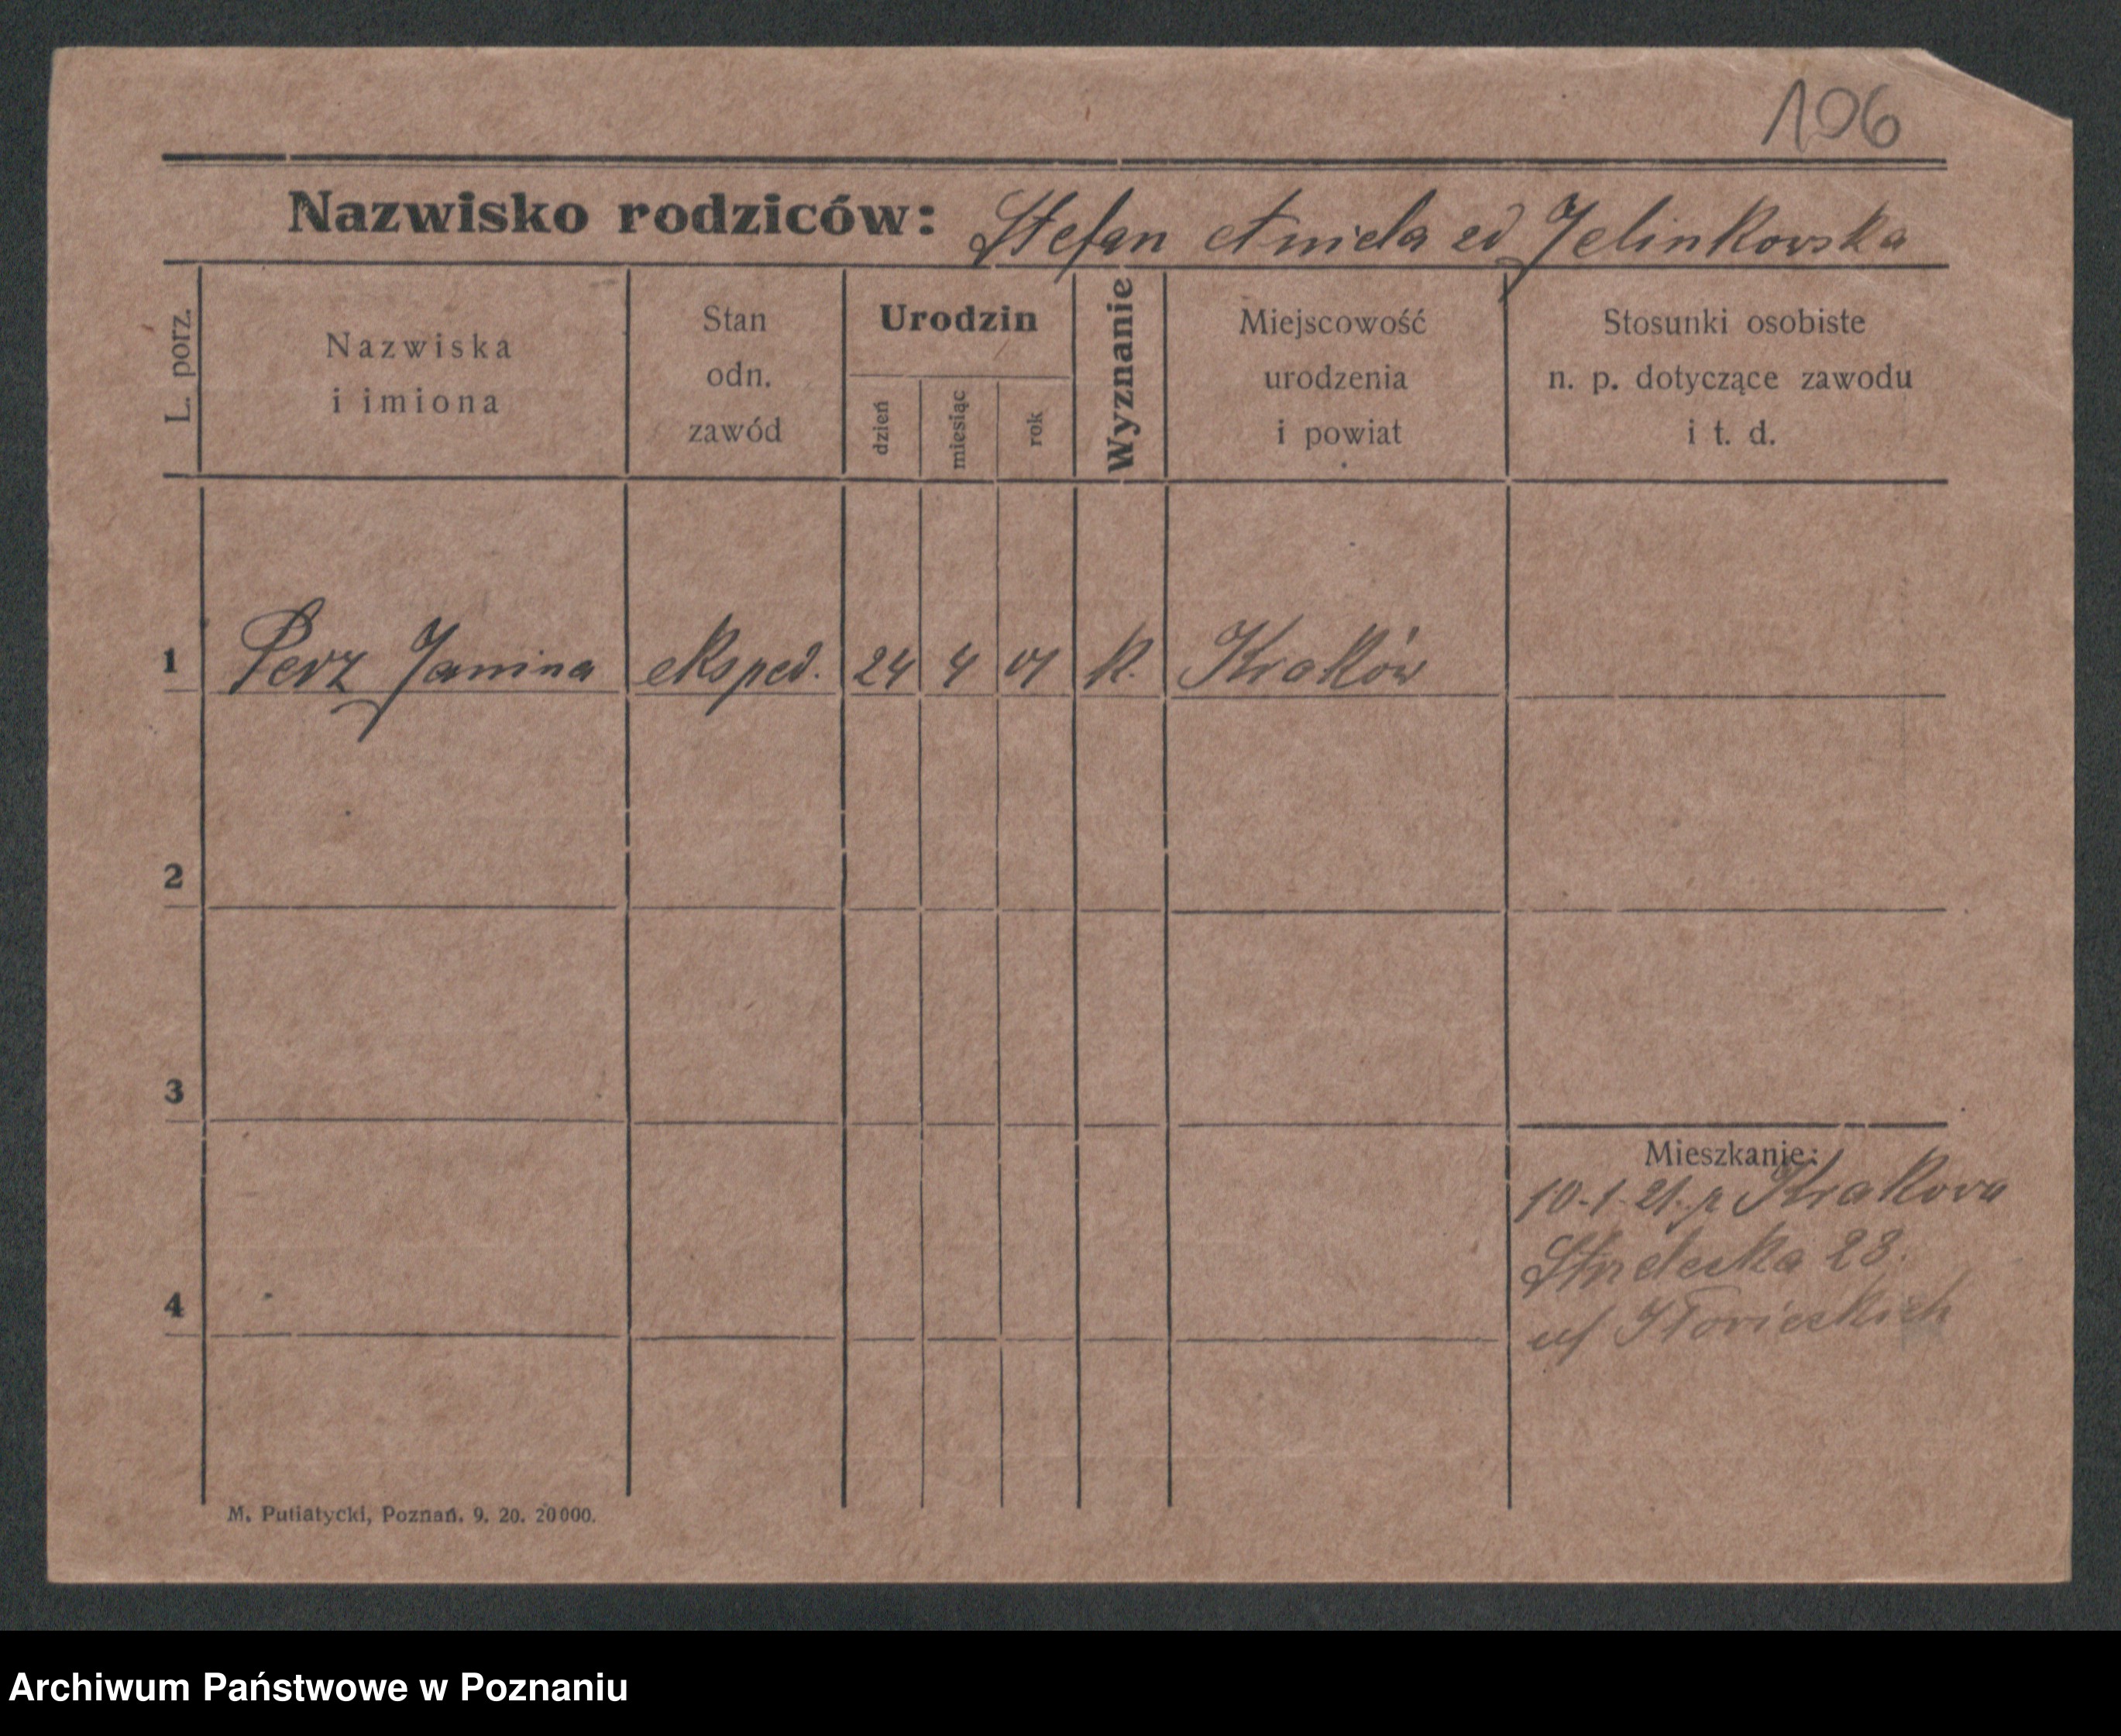 106
Nazwisko rodziców: Stefan Aniela zd Jelinkowska
L. porz.
Nazwiska
i imiona
Stan
odn.
zawód
Urodzin
dzień
miesiąc
rok
Wyznanie
Miejscowość
urodzenia
i powiat
Stosunki osobiste
n. p. dotyczące zawodu
i t. d.
1 Perz Janina eksped. 24 4 01 k. Kraków
2
3
Mieszkanie:
10-1-21. z Krakowa
Strzelecka 28.
4
M. Putiatycki, Poznań. 9. 20. 20000.
Archiwum Państwowe w Poznaniu